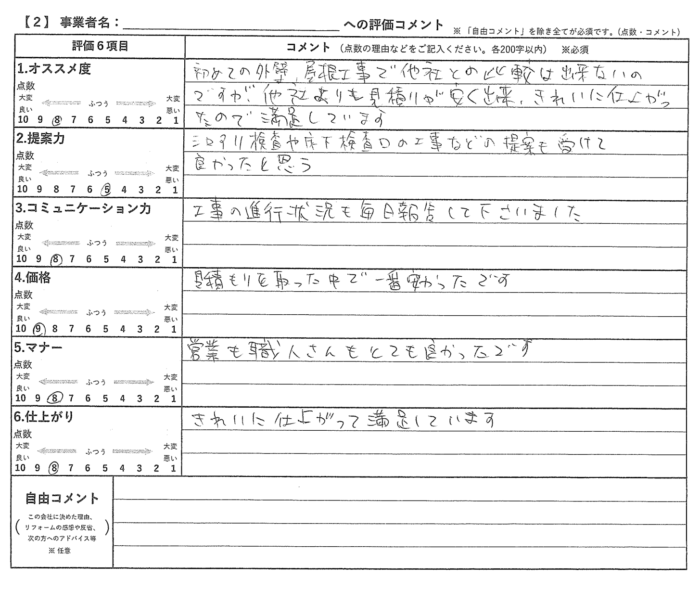 【2】 事業者名： への評価コメント ※「自由コメント」を除き全てが必須です。（点数・コメント）
評価６項目 コメント （点数の理由などをご記入ください。各200字以内） ※必須
1.オススメ度
点数
大変良い ふつう 大変悪い
10 9 8 7 6 5 4 3 2 1
初めての外壁、屋根工事で他社との比較は出来ないの
ですが、他社よりも見積りが安く出来、きれいに仕上がっ
たので満足しています
2.提案力
点数
大変良い ふつう 大変悪い
10 9 8 7 6 5 4 3 2 1
シロアリ検査や床下検査口の工事などの提案も受けて
良かったと思う
3.コミュニケーション力
点数
大変良い ふつう 大変悪い
10 9 8 7 6 5 4 3 2 1
工事の進行状況も毎日報告して下さいました
4.価格
点数
大変良い ふつう 大変悪い
10 9 8 7 6 5 4 3 2 1
見積もりを取った中で一番安かったです
5.マナー
点数
大変良い ふつう 大変悪い
10 9 8 7 6 5 4 3 2 1
営業も職人さんもとても良かったです
6.仕上がり
点数
大変良い ふつう 大変悪い
10 9 8 7 6 5 4 3 2 1
きれいに仕上がって満足しています
自由コメント
この会社に決めた理由、
リフォームの感想や反省、
次の方へのアドバイス等
※ 任意